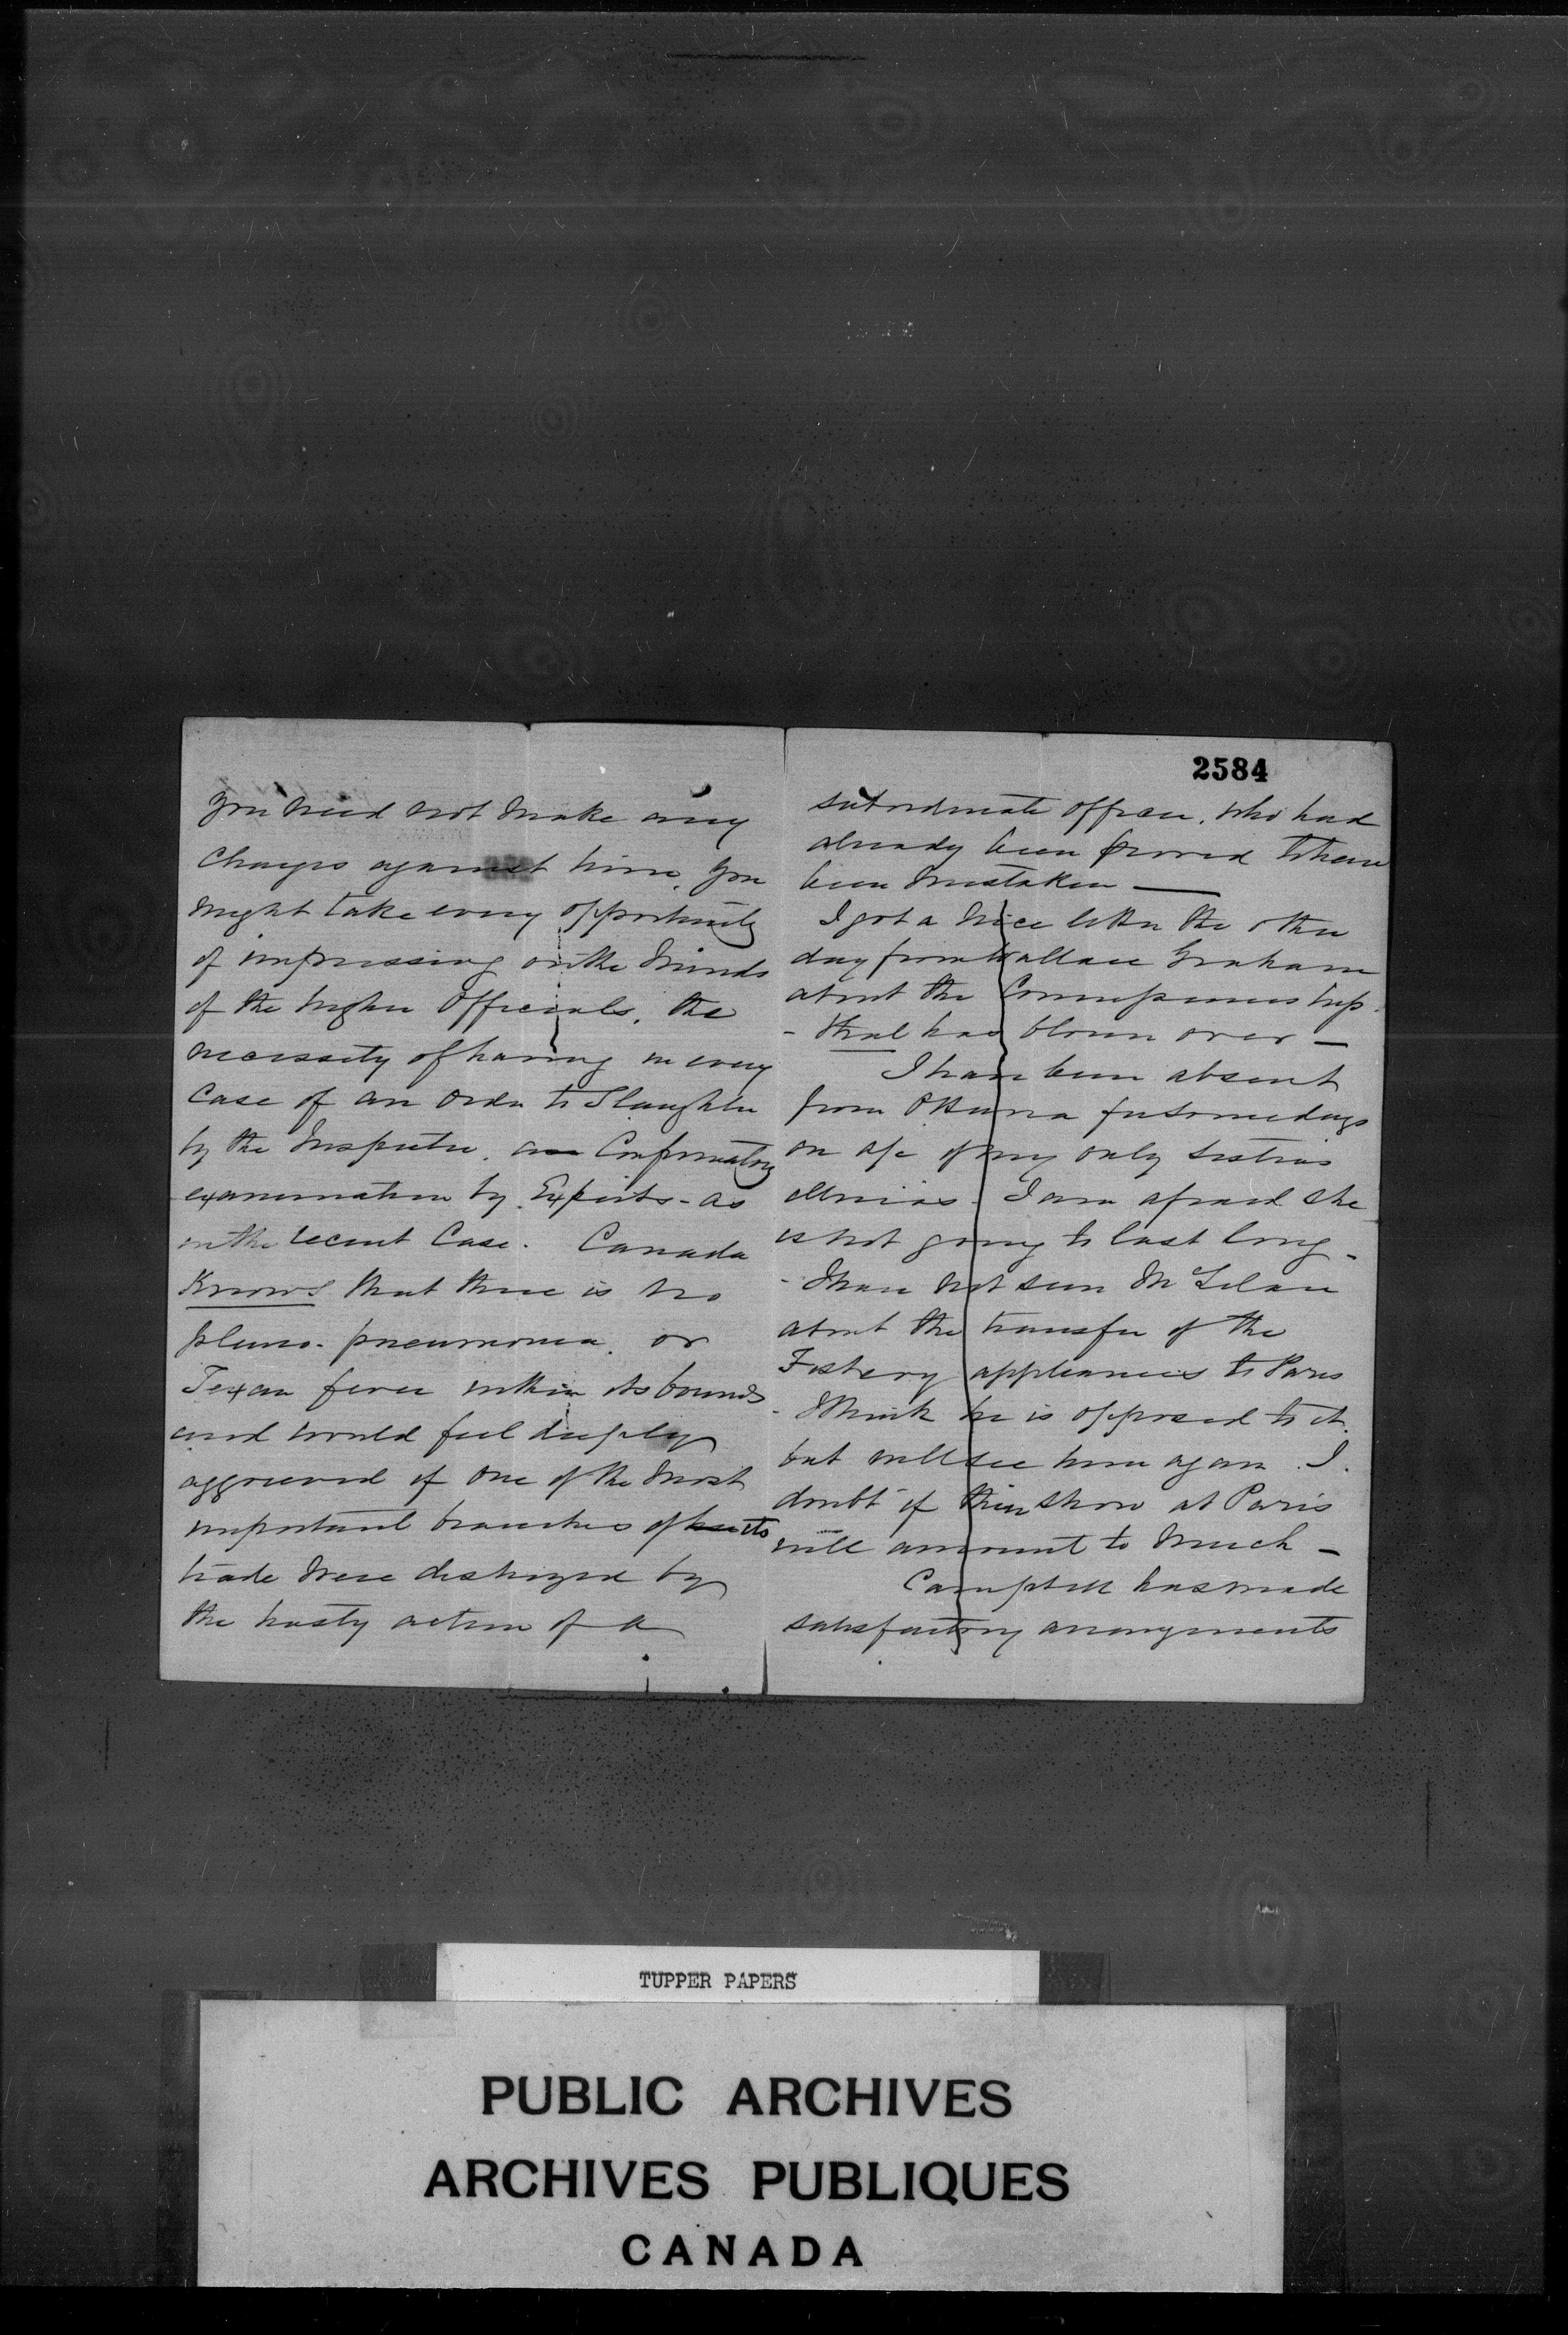 you need not make any
charges against him, you
might take every opportunity
of impressing on the minds
of the higher officials, the
necessity of having in every
case of an order to slaughter
by the Inspector, a Confirmatory
examination by Experts - as
in the recent Case. Canada
Knows that there is no
pleuro-pneumonia, or
Texan fever within its bounds
and would feel deeply
aggrieved if one of the most
important branches of its
trade were destroyed by
the hasty action of a
2584
subordinate officer, who had
already been proved to have
been mistaken —
I got a nice letter the other
day from Wallace Graham
about the Commissionership.
- that has blown over —
I have been absent
from Ottawa for some days
on a/c of my only sister's
illness. I am afraid she
is not going to last long -
- I have not seen McLelan
about the transfer of the
Fishery appliances to Paris
- I think he is opposed to it.
but will see him again. I
doubt if their show at Paris
will amount to much —
Campbell has made
satisfactory arrangements
TUPPER PAPERS
PUBLIC ARCHIVES
ARCHIVES PUBLIQUES
CANADA